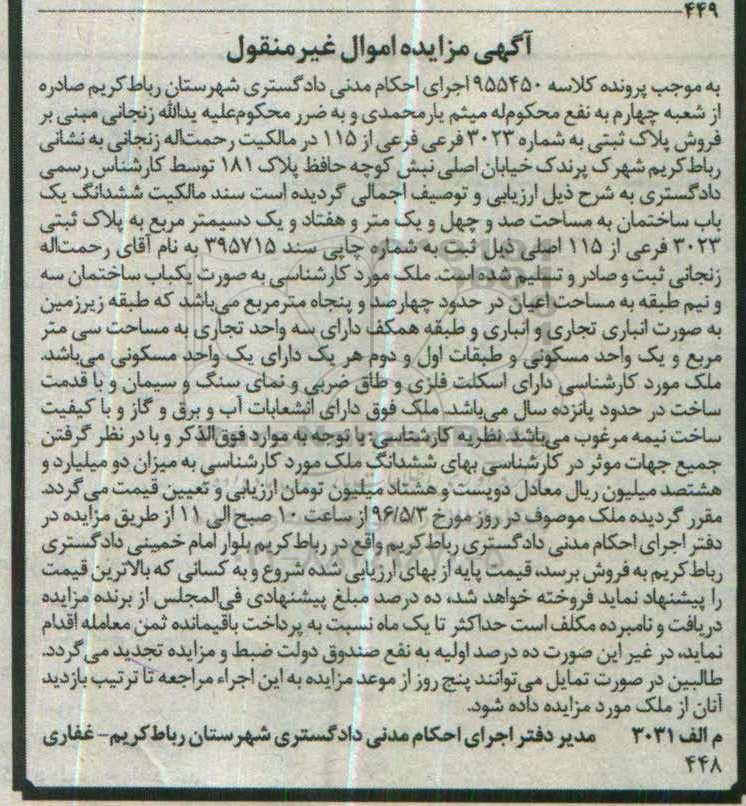 ۴۴۹
آگهی مزایده اموال غیرمنقول
به موجب پرونده کلاسه ۹۵۵۴۵۰ اجرای احکام مدنی دادگستری شهرستان رباط‌کریم صادره
از شعبه چهارم به نفع محکوم‌له میثم یارمحمدی و به ضرر محکوم‌علیه یدالله زنجانی مبنی بر
فروش پلاک ثبتی به شماره ۳۰۲۳ فرعی فرعی از ۱۱۵ در مالکیت رحمت‌اله زنجانی به نشانی
رباط‌کریم شهرک پرندک خیابان اصلی نبش کوچه حافظ پلاک ۱۸۱ توسط کارشناس رسمی
دادگستری به شرح ذیل ارزیابی و توصیف اجمالی گردیده است سند مالکیت ششدانگ یک
باب ساختمان به مساحت صد و چهل و یک متر و هفتاد و یک دسیمتر مربع به پلاک ثبتی
۳۰۲۳ فرعی از ۱۱۵ اصلی ذیل ثبت به شماره چاپی سند ۳۹۵۷۱۵ به نام آقای رحمت‌اله
زنجانی ثبت و صادر و تسلیم شده است. ملک مورد کارشناسی به صورت یکباب ساختمان سه
و نیم طبقه به مساحت اعیان در حدود چهارصد و پنجاه مترمربع می‌باشد که طبقه زیرزمین
به صورت انباری تجاری و انباری و طبقه همکف دارای سه واحد تجاری به مساحت سی متر
مربع و یک واحد مسکونی و طبقات اول و دوم هر یک دارای یک واحد مسکونی می‌باشد.
ملک مورد کارشناسی دارای اسکلت فلزی و طاق ضربی و نمای سنگ و سیمان و با قدمت
ساخت در حدود پانزده سال می‌باشد. ملک فوق دارای انشعابات آب و برق و گاز و با کیفیت
ساخت نیمه مرغوب می‌باشد. نظریه کارشناسی: با توجه به موارد فوق‌الذکر و با در نظر گرفتن
جمیع جهات موثر در کارشناسی بهای ششدانگ ملک مورد کارشناسی به میزان دو میلیارد و
هشتصد میلیون ریال معادل دویست و هشتاد میلیون تومان ارزیابی و تعیین قیمت می‌گردد.
مقرر گردیده ملک موصوف در روز مورخ ۹۶/۵/۳ از ساعت ۱۰ صبح الی ۱۱ از طریق مزایده در
دفتر اجرای احکام مدنی دادگستری رباط‌کریم واقع در رباط‌کریم بلوار امام خمینی دادگستری
رباط‌کریم به فروش برسد، قیمت پایه از بهای ارزیابی شده شروع و به کسانی که بالاترین قیمت
را پیشنهاد نماید فروخته خواهد شد، ده درصد مبلغ پیشنهادی فی‌المجلس از برنده مزایده
دریافت و نامبرده مکلف است حداکثر تا یک ماه نسبت به پرداخت باقیمانده ثمن معامله اقدام
نماید، در غیر این صورت ده درصد اولیه به نفع صندوق دولت ضبط و مزایده تجدید می‌گردد.
طالبین در صورت تمایل می‌توانند پنج روز از موعد مزایده به این اجراء مراجعه تا ترتیب بازدید
آنان از ملک مورد مزایده داده شود.
م الف ۳۰۳۱ مدیر دفتر اجرای احکام مدنی دادگستری شهرستان رباط‌کریم- غفاری
۴۴۸